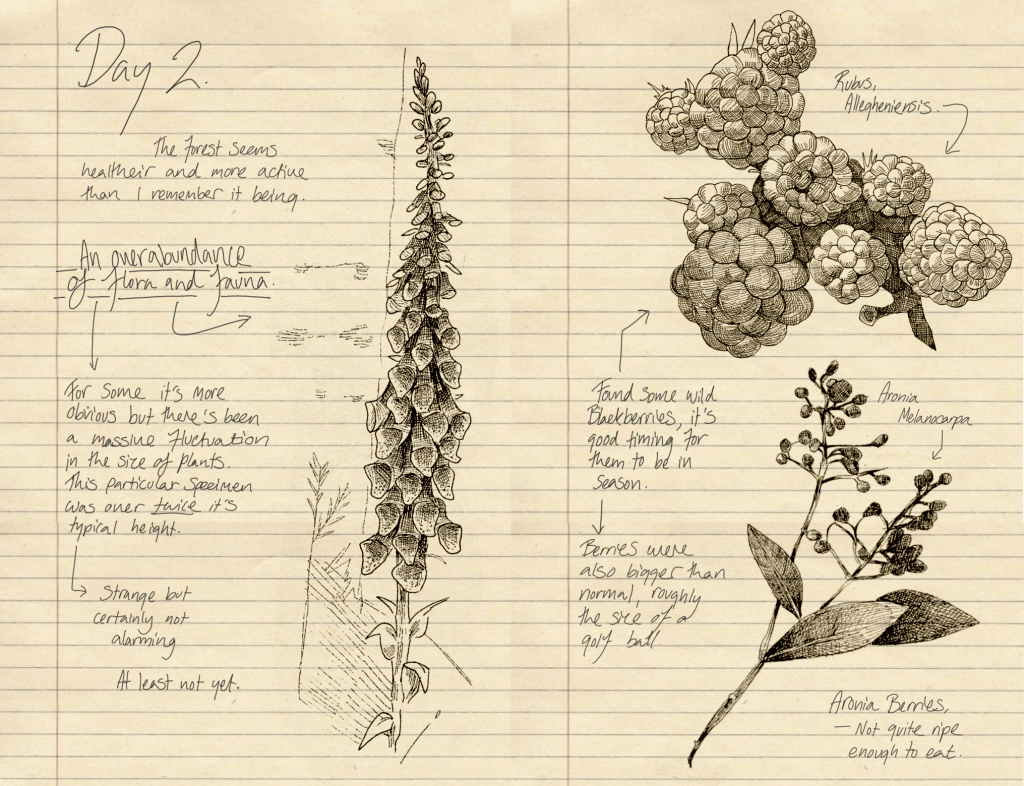 Day 2.
The forest seems
healtheir and more active
than I remember it being.
An overabundance
of flora and fauna.
For some it's more
obvious but there's been
a massive fluctuation
in the size of plants.
This particular specimen
was over twice it's
typical height.
Strange but
certainly not
alarming
At least not yet.
Rubus,
Allegheniensis.
Found some wild
Blackberries, it's
good timing for
them to be in
season.
Berries were
also bigger than
normal, roughly
the size of a
golf ball.
Aronia
Melanocarpa
Aronia Berries,
— Not quite ripe
enough to eat.